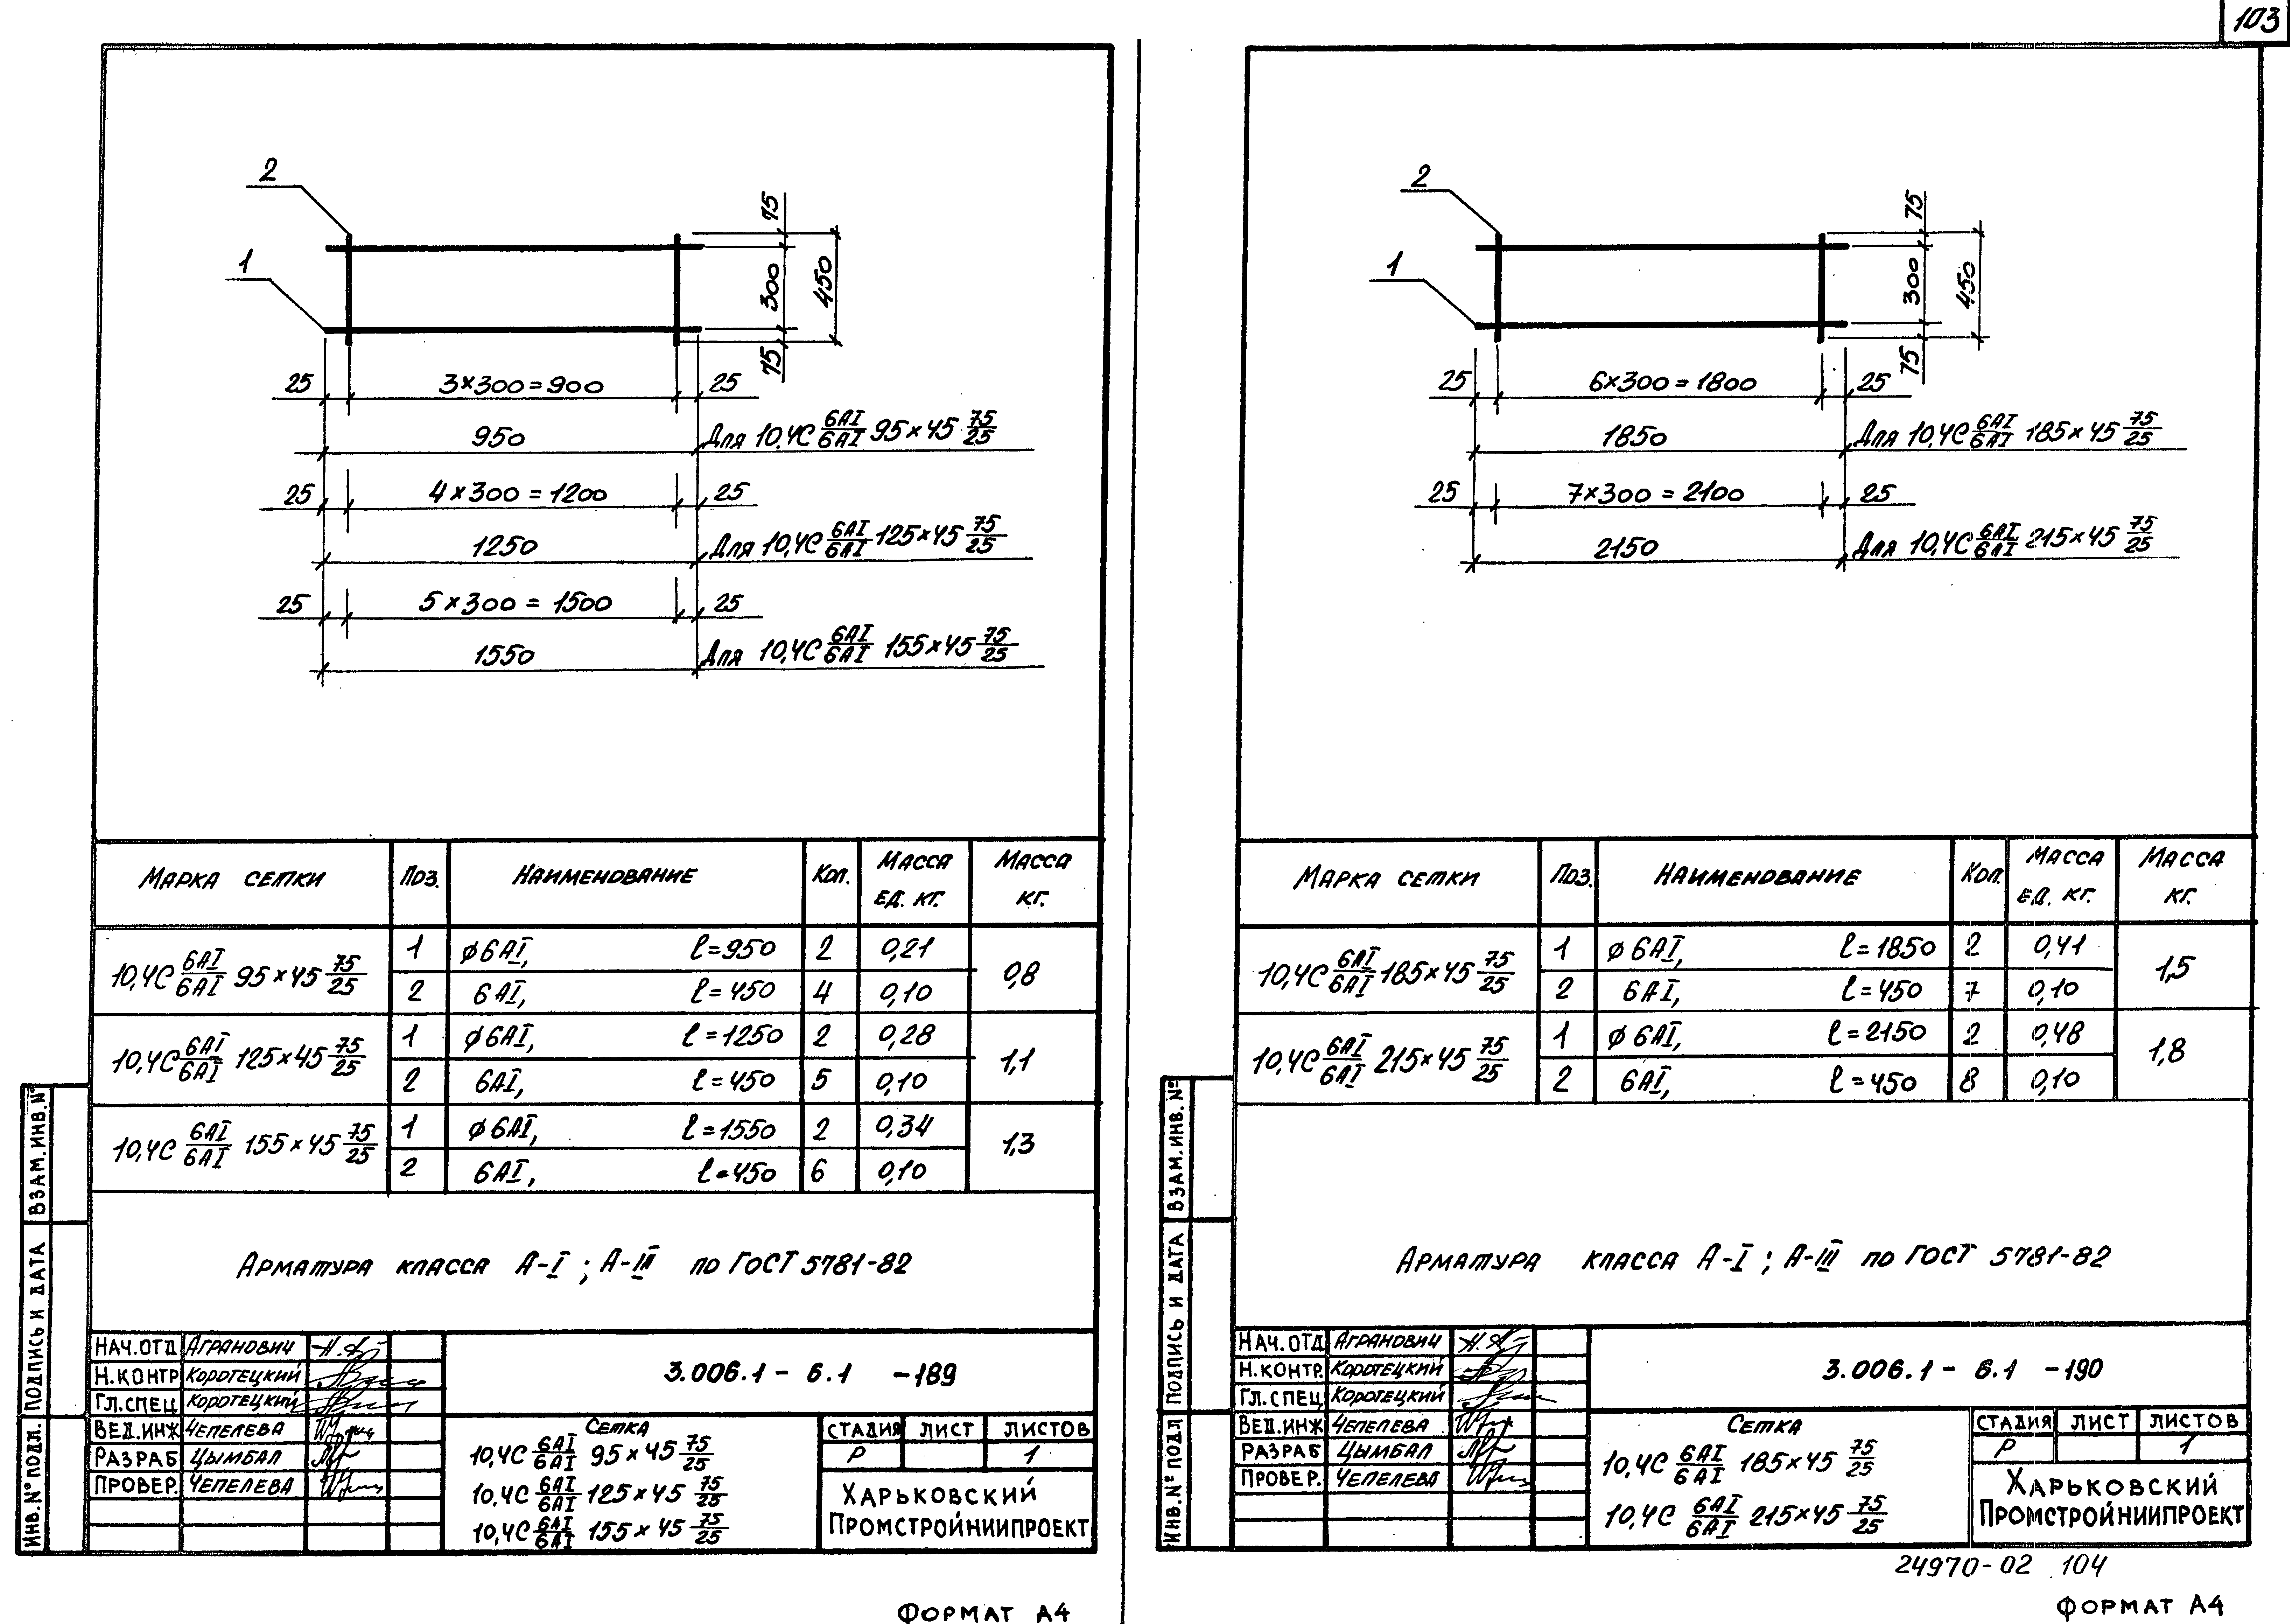 103
2
1
75
300
450
75
25 3×300=900 25
950 Для 10,4С 6АI/6АI 95×45 75/25
25 4×300=1200 25
1250 Для 10,4С 6АI/6АI 125×45 75/25
25 5×300=1500 25
1550 Для 10,4С 6АI/6АI 155×45 75/25
Марка сетки Поз. Наименование Кол. Масса ед. кг. Масса кг.
10,4С 6АI/6АI 95×45 75/25 1 ϕ6АI, ℓ=950 2 0,21 0,8
2 6АI, ℓ=450 4 0,10
10,4С 6АI/6АI 125×45 75/25 1 ϕ6АI, ℓ=1250 2 0,28 1,1
2 6АI, ℓ=450 5 0,10
10,4С 6АI/6АI 155×45 75/25 1 ϕ6АI, ℓ=1550 2 0,34 1,3
2 6АI, ℓ=450 6 0,10
Арматура класса А-I; А-III по ГОСТ 5781-82
Инв.№ подл. Подпись и дата Взам.инв.№
Нач.отд Агранович
Н.контр Коротецкий
Гл.спец Коротецкий
Вед.инж Чепелева
Разраб Цымбал
Провер. Чепелева
3.006.1 - 6.1 -189
Сетка
10,4С 6АI/6АI 95×45 75/25
10,4С 6АI/6АI 125×45 75/25
10,4С 6АI/6АI 155×45 75/25
Стадия Лист Листов
Р 1
Харьковский
Промстройниипроект
Формат А4
2
1
75
300
450
75
25 6×300=1800 25
1850 Для 10,4С 6АI/6АI 185×45 75/25
25 7×300=2100 25
2150 Для 10,4С 6АI/6АI 215×45 75/25
Марка сетки Поз. Наименование Кол. Масса ед. кг. Масса кг.
10,4С 6АI/6АI 185×45 75/25 1 ϕ6АI, ℓ=1850 2 0,41 1,5
2 6АI, ℓ=450 7 0,10
10,4С 6АI/6АI 215×45 75/25 1 ϕ6АI, ℓ=2150 2 0,48 1,8
2 6АI, ℓ=450 8 0,10
Арматура класса А-I; А-III по ГОСТ 5781-82
Инв.№ подл Подпись и дата Взам.инв.№
Нач.отд Агранович
Н.контр. Коротецкий
Гл.спец Коротецкий
Вед.инж Чепелева
Разраб Цымбал
Провер. Чепелева
3.006.1 - 6.1 -190
Сетка
10,4С 6АI/6АI 185×45 75/25
10,4С 6АI/6АI 215×45 75/25
Стадия Лист Листов
Р 1
Харьковский
Промстройниипроект
24970-02 104
Формат А4